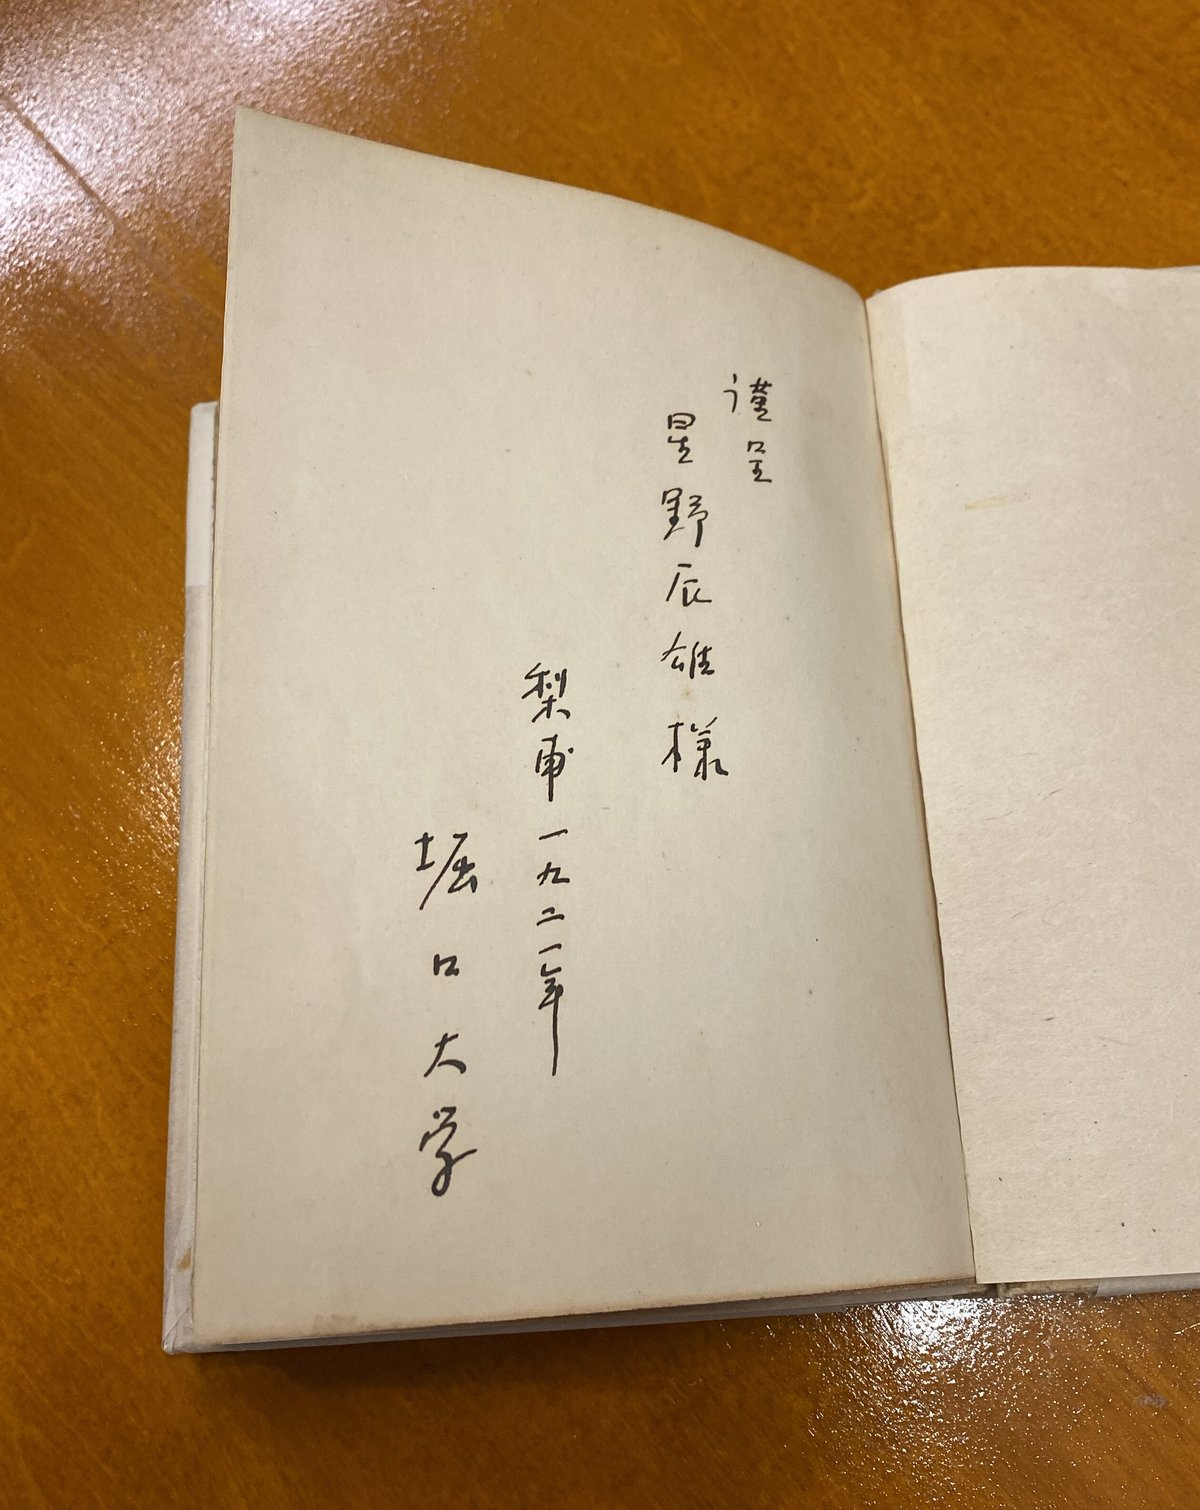 謹呈
星野辰雄様
梨甫一九二一年
堀口大学